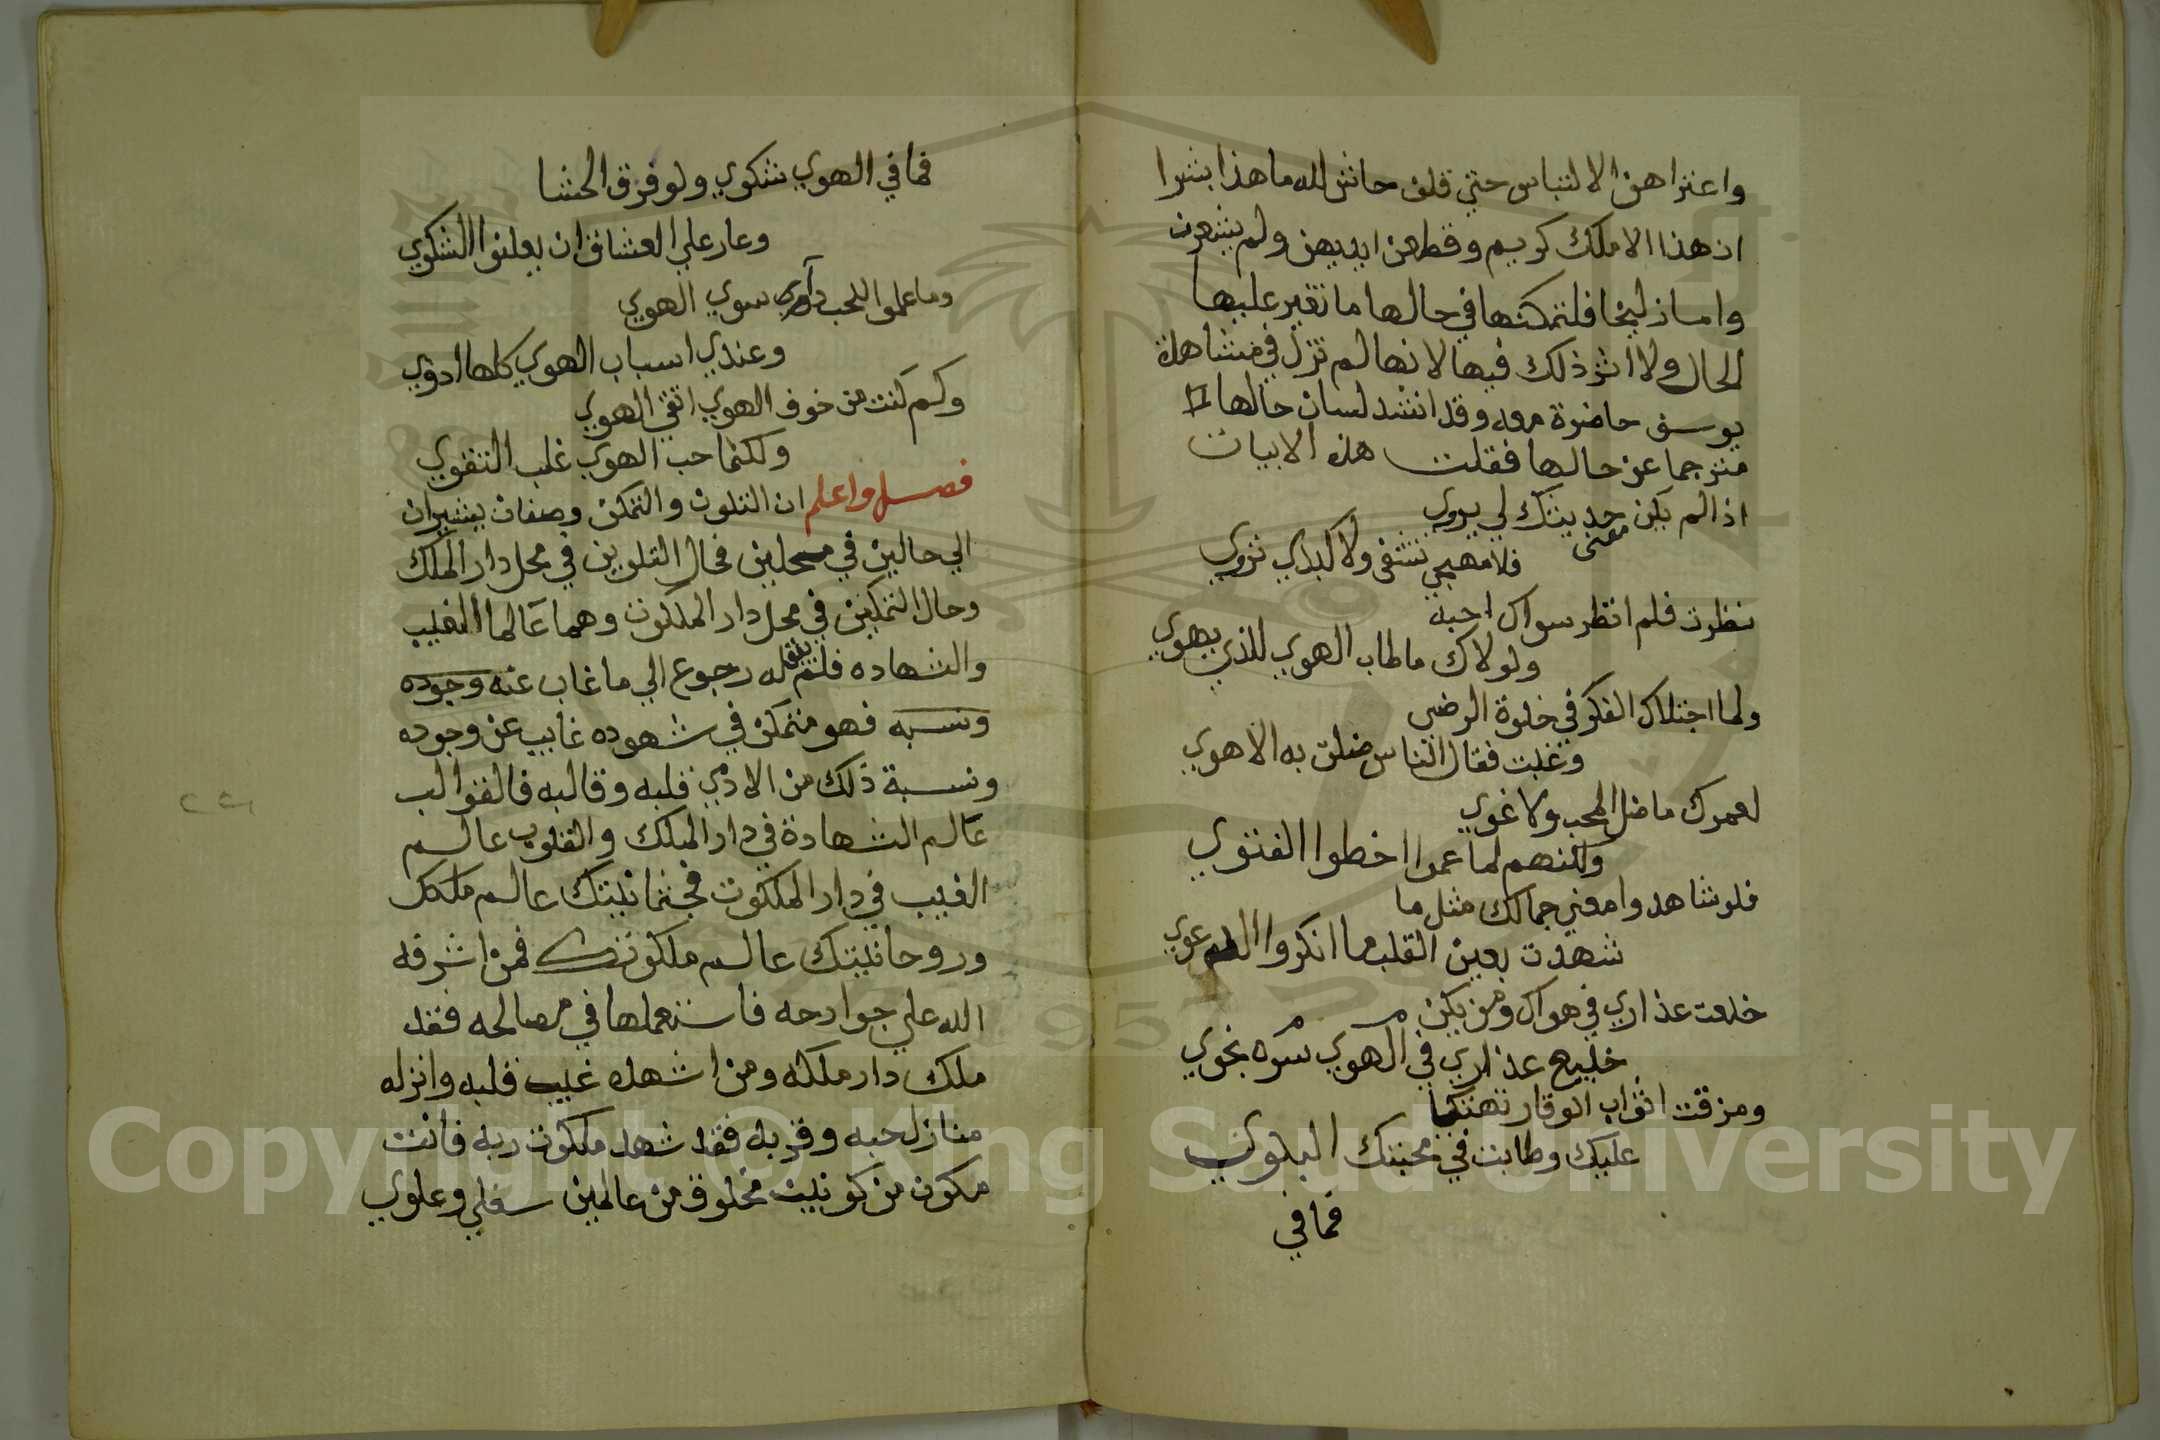 واعتراهن الالتباس حتي قلن حاش لله ما هذا بشرا
ان هذا الا ملك كريم وقطعن ايديهن ولم يشعرن
واما زليخا فلتمكنها في حالها ما تغير عليها
الحال ولا اثر ذلك فيها لانها لم تزل في مشاهدة
يوسف حاضرة معه وقد انشد لسان حالها
مترجما عن حالها فقلت هذه الابيات
اذا لم يكن معني حديثك لي يروي
فلا مهجتي تشفي ولا كبدي تروي
نظرت فلم انظر سواك احبه
ولولاك ما طاب الهوي للذي يهوي
ولما اجتلاك الفكر في خلوة الرضي
وغبت فقال الناس ضلت به الاهوي
لعمرك ما ضل المحب ولا غوي
ولكنهم لما عموا اخطوا الفتوي
فلو شاهدوا معني جمالك مثل ما
شهدت بعين القلب ما انكروا الدعوي
خلعت عذاري في هواك ومن يكن
خليع عذاري في الهوي سره نجوي
ومزقت اثواب الوقار تهتكا
عليك وطابت في محبتك البلوي
فما في
فما في الهوي شكوي ولو فرق الحشا
وعار علي العشاق ان يعلنوا الشكوي
وما علموا للحب دآء سوي الهوي
وعندي اسباب الهوي كلها ادوي
وكم كنت من خوف الهوي اتقي الهوي
ولكنما حب الهوي غلب التقوي
فصل واعلم ان التلون والتمكن وصفان يشيران
الي حالين في محلين فحال التلوين في محل دار الملك
وحال التمكين في محل دار الملكوت وهما عالما الغيب
والشهاده فلم يبق له رجوع الي ما غاب عنه وجوده
ونسبه فهو متمكن في شهوده غايب عن وجوده
ونسبة ذلك من الادمي قلبه وقالبه فالقوالب
عالم الشهادة في دار الملك والقلوب عالم
الغيب في دار الملكوت فجثمانيتك عالم ملكك
وروحانيتك عالم ملكوتك فمن اشرفه
الله علي جوارحه فاستعملها في مصالحه فقد
ملك دار ملكه ومن اشهده غيب قلبه وانزله
منازل حبه وقربه فقد شهد ملكوت ربه فانت
مكون من كونين مخلوق من عالمين سفلي وعلوي
Copyright © King Saud University